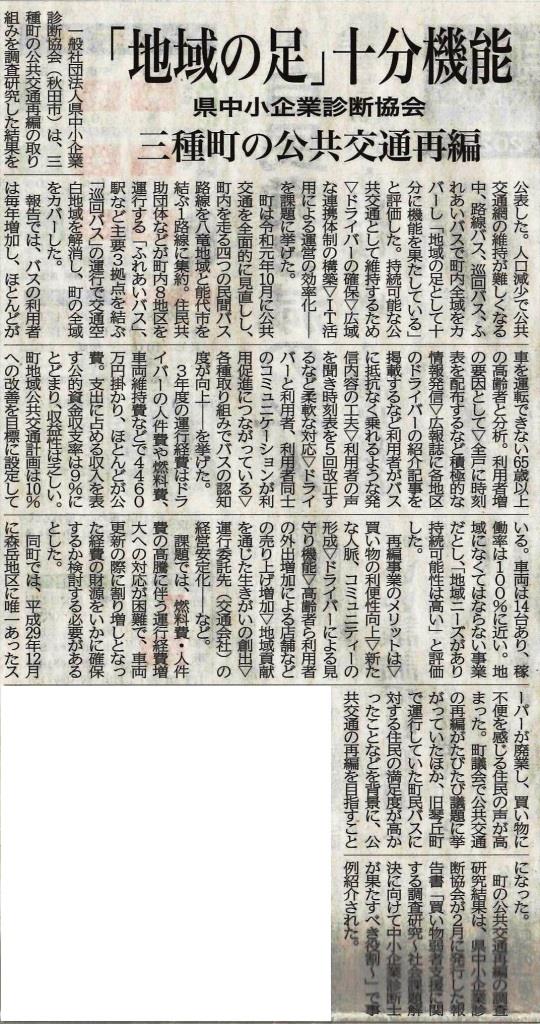 「地域の足」十分機能
県中小企業診断協会
三種町の公共交通再編
一般社団法人県中小企業
診断協会（秋田市）は、三
種町の公共交通再編の取り
組みを調査研究した結果を
公表した。人口減少で公共
交通網の維持が難しくなる
中、路線バス、巡回バス、ふ
れあいバスで町内全域をカ
バーし「地域の足として十
分に機能を果たしている」
と評価した。持続可能な公
共交通として維持するため
▽ドライバーの確保▽広域
な連携体制の構築▽ＩＴ活
用による運営の効率化――
を課題に挙げた。
町は令和元年10月に公共
交通を全面的に見直しし、
町内を走る四つの民間バス
路線を八竜地域と能代市を
結ぶ１路線に集約。住民共
助団体などが町内８地区を
運行する「ふれあいバス」、
駅など主要３拠点を結ぶ
「巡回バス」の運行で交通空
白地域を解消し、町の全域
をカバーした。
報告では、バスの利用者
は毎年増加し、ほとんどが
車を運転できない65歳以上
の高齢者と分析。利用者増
の要因として▽全戸に時刻
表を配布するなど積極的な
情報発信▽広報誌に各地区
のドライバーの紹介記事を
掲載するなど利用者がバス
に抵抗なく乗れるような発
信内容の工夫▽利用者の声
を聞き時刻表を５回改正す
るなど柔軟な対応▽ドライ
バーと利用者、利用者同士
のコミュニケーションが利
用促進につながっている▽
各種取り組みでバスの認知
度が向上――を挙げた。
３年度の運行経費はドラ
イバーの人件費や燃料費、
車両維持費などで４４６０
万円掛かり、ほとんどが公
費。支出に占める収入を表
す公的資金収支率は９％に
とどまり、収益性は乏しい。
町地域公共交通計画は10％
への改善を目標に設定して
いる。車両は14台あり、稼
働率は１００％に近い。地
域になくてはならない事業
だとし、「地域ニーズがあり
持続可能性は高い」と評価
した。
再編事業のメリットは▽
買い物の利便性向上▽新た
な人脈、コミュニティーの
形成▽ドライバーによる見
守り機能▽高齢者ら利用者
の外出増加による店舗など
の売り上げ増加▽地域貢献
を通じた生きがいの創出▽
運行委託先（交通会社）の
経営安定化――など。
課題では、燃料費・人件
費の高騰に伴う運行経費増
大への対応が困難で、車両
更新の際に割り増しとなっ
た経費の財源をいかに確保
するか検討する必要がある
とした。
同町では、平成29年12月
に森岳地区に唯一あったス
ーパーが廃業し、買い物に
不便を感じる住民の声が高
まった。町議会で公共交通
の再編がたびたび議題に挙
がっていたほか、旧琴丘町
で運行していた町民バスに
対する住民の満足度が高か
ったことなどを背景に、公
共交通の再編を目指すこと
になった。
町の公共交通再編の調査
研究結果は、県中小企業診
断協会が２月に発行した報
告書「買い物弱者支援に関
する調査研究～社会課題解
決に向けて中小企業診断士
が果たすべき役割～」で事
例紹介された。